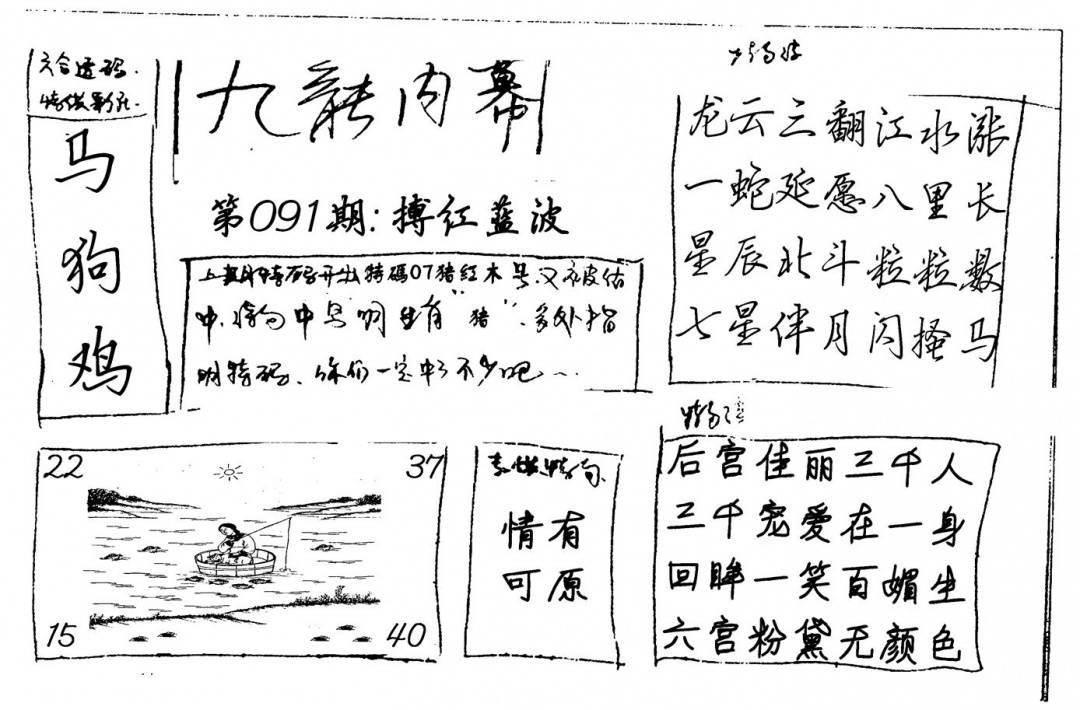 六合透码.
马
狗
鸡
九龍内幕
第091期:搏红蓝波
上期特码开出特碼07猪红木号又被估
中.特句中号明生肖"猪".多处指
明特码、你们一定中了不少吧~
龙云三翻江水涨
一蛇延愿八里长
星辰北斗粒粒数
七星伴月闪搔马
22
37
15
40
情有
可原
后宫佳丽三千人
三千宠爱在一身
回眸一笑百媚生
六宫粉黛无颜色